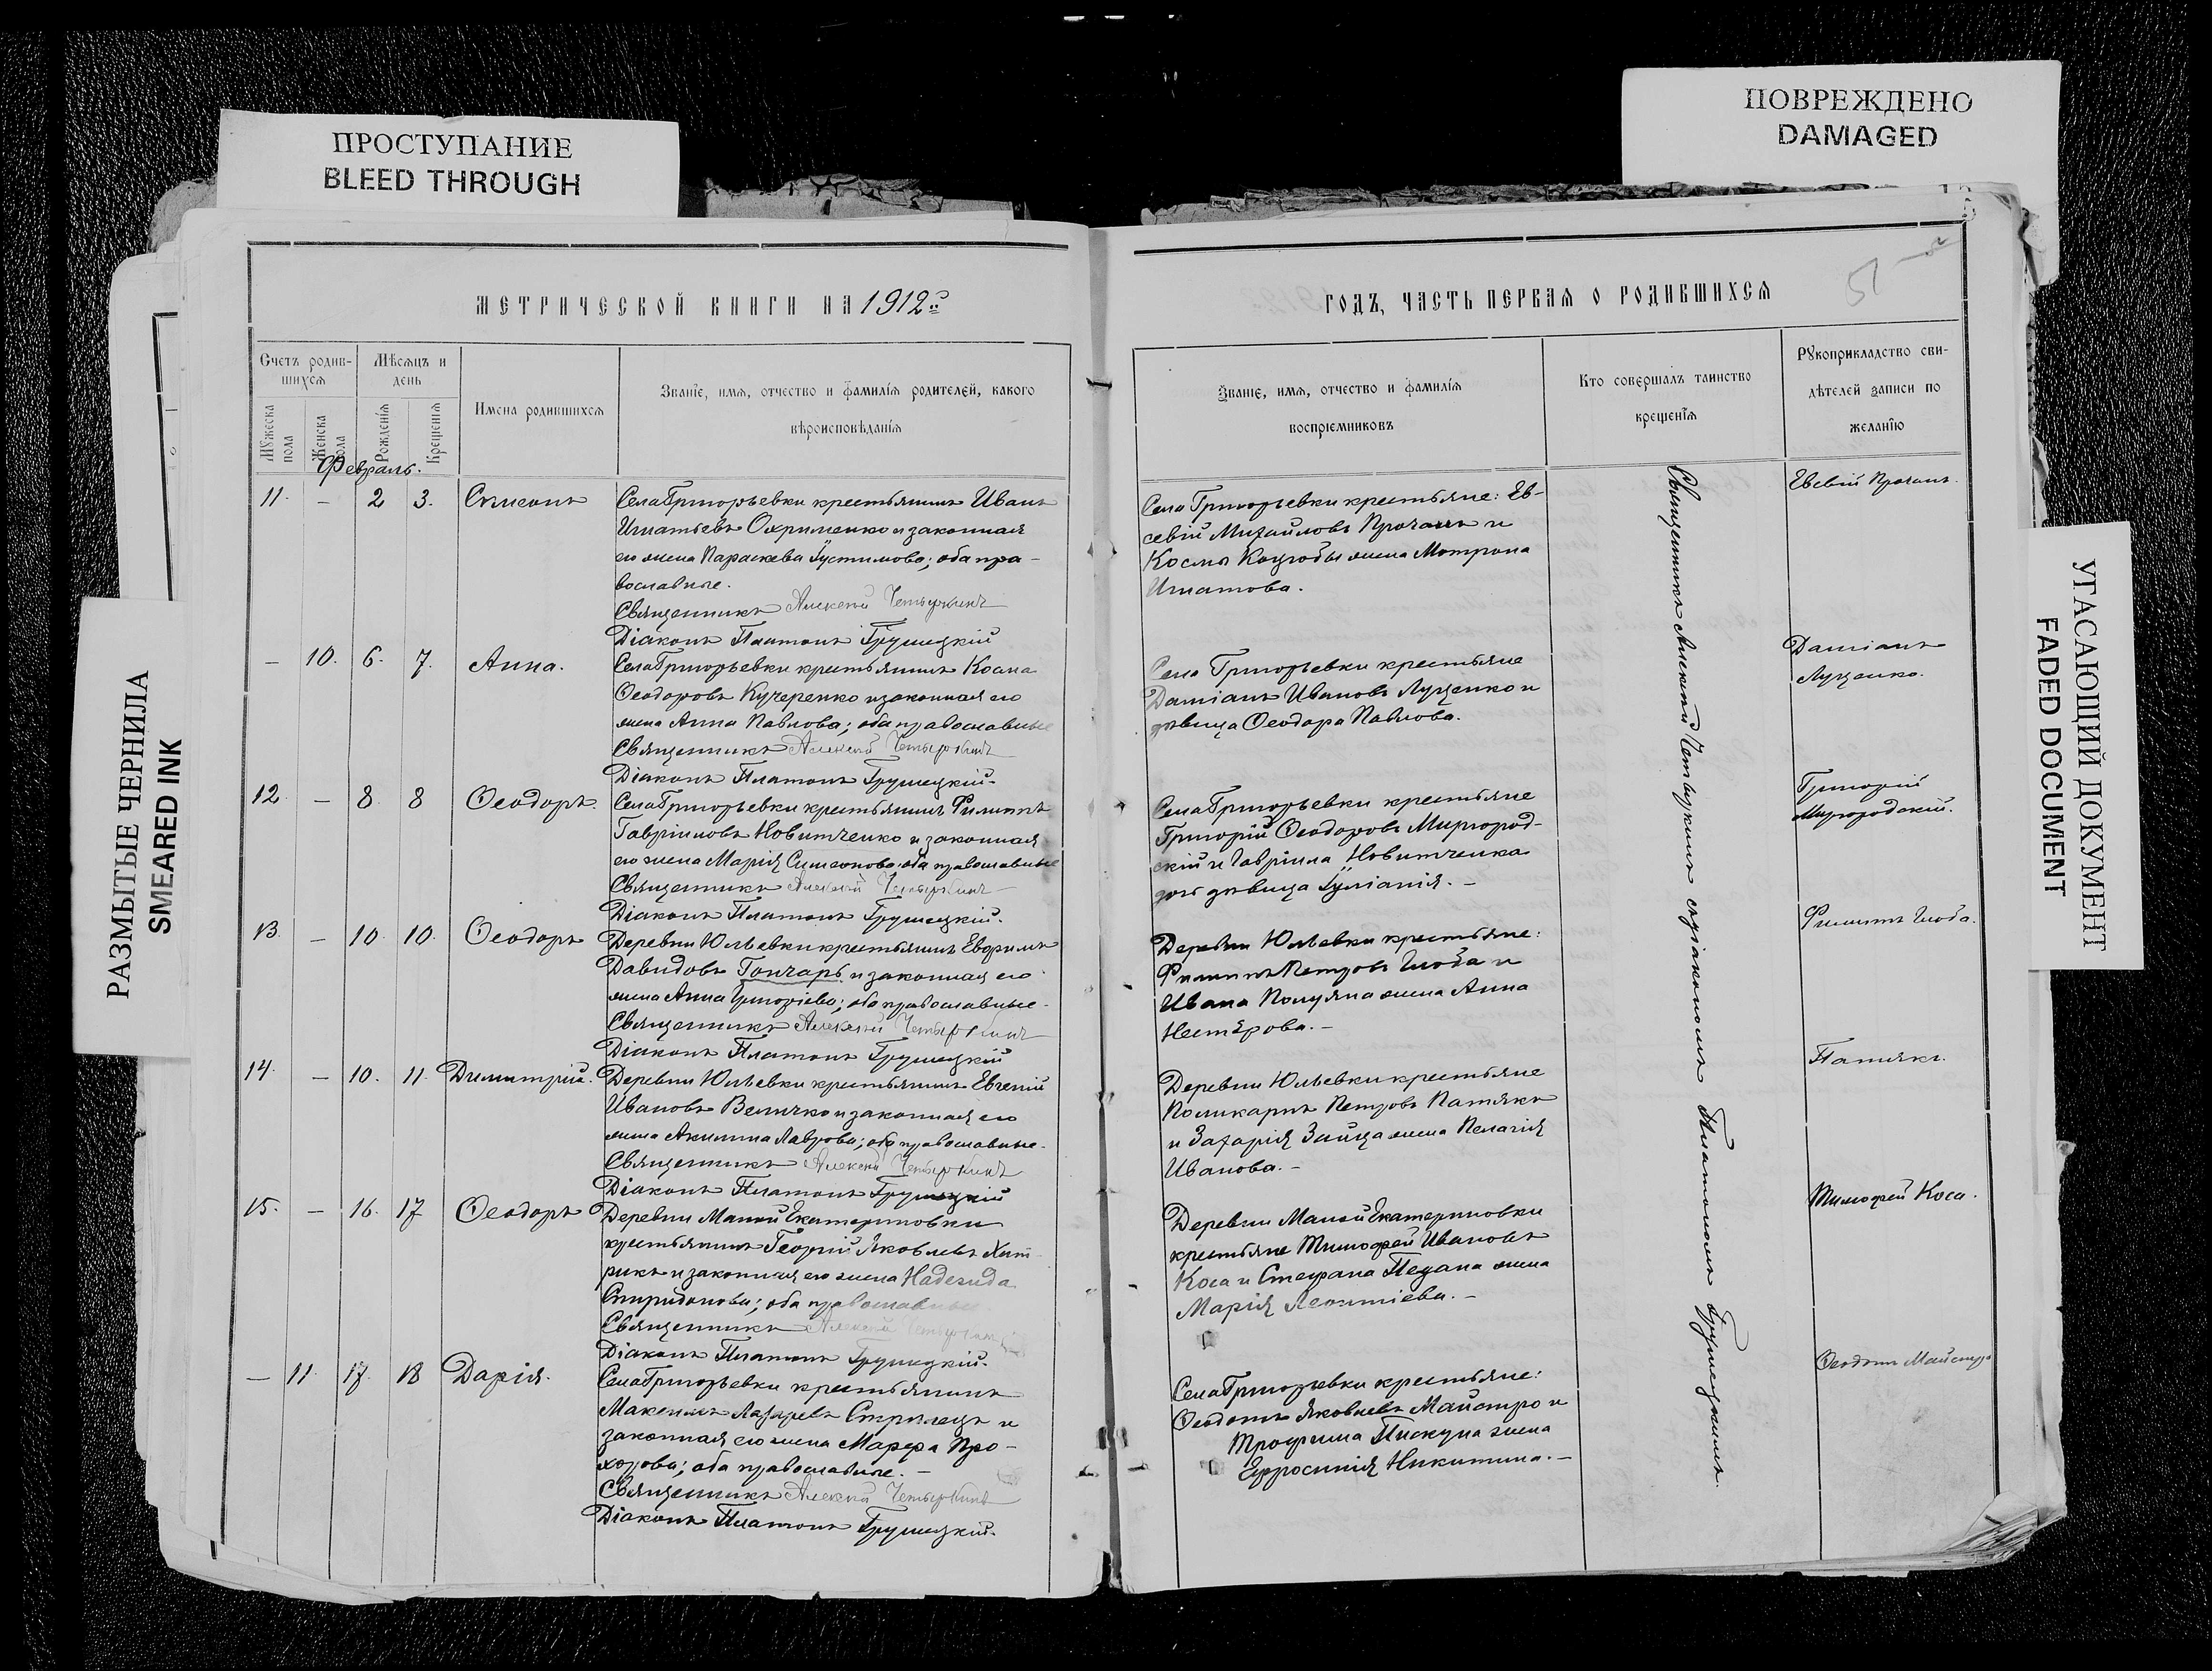 ПРОСТУПАНИЕ
BLEED THROUGH
ПОВРЕЖДЕНО
DAMAGED
РАЗМЫТЫЕ ЧЕРНИЛА
SMEARED INK
УГАСАЮЩИЙ ДОКУМЕНТ
FADED DOCUMENT
МЕТРИЧЕСКОЙ КНИГИ НА 1912й
Счетъ родив-
шихся
Мѣсяцъ и
день
Имена родившихся
Званіе, имя, отчество и фамилія родителей, какого
вѣроисповѣданія
Мужеска
пола
Женска
пола
Рожденія
Крещенія
Февраль.
11. – 2 3. Симеонъ
Села Григорьевки крестьянинъ Иванъ
Игнатьевъ Охрименко и законная
его жена Параскева Іустинова; оба пра-
вославные.
Священникъ Алексей Четыркинъ
Діаконъ Платонъ Грушецкій
– 10. 6. 7. Анна.
Села Григорьевки крестьянинъ Косма
Ѳеодоровъ Кучеренко и законная его
жена Анна Павлова; оба православные
Священникъ Алексей Четыркинъ
Діаконъ Платонъ Грушецкій.
12. – 8. 8 Ѳеодоръ.
Села Григорьевки крестьянинъ Филиппъ
Гавріиловъ Новитченко и законная
его жена Марія Симеонова; оба православные
Священникъ Алексей Четыркинъ
Діаконъ Платонъ Грушецкій.
13. – 10 10. Ѳеодоръ
Деревни Юльевки крестьянинъ Евфимъ
Давидовъ Гончаръ и законная его
жена Анна Григоріева; оба православные.
Священникъ Алексей Четыркинъ
Діаконъ Платонъ Грушецкій
14. – 10. 11. Димитрій.
Деревни Юльевки крестьянинъ Евгеній
Ивановъ Величко и законная его
жена Акилина Лаврова; оба православные.
Священникъ Алексей Четыркинъ
Діаконъ Платонъ Грушецкій
15. – 16. 17 Ѳеодоръ
Деревни Малой Екатериновки
крестьянинъ Георгій Яковлевъ Хит-
рикъ и законная его жена Надежда
Спиридонова; оба православные
Священникъ Алексей Четыркинъ
Діаконъ Платонъ Грушецкій.
– 11. 17. 18 Дарія.
Села Григорьевки крестьянинъ
Максимъ Лазаревъ Стрилецъ и
законная его жена Марфа Про-
хорова; оба православные. –
Священникъ Алексей Четыркинъ
Діаконъ Платонъ Грушецкій.
ГОДЪ, ЧАСТЬ ПЕРВАЯ О РОДИВШИХСЯ
Званіе, имя, отчество и фамилія
воспріемниковъ
Кто совершалъ таинство
крещенія
Рукоприкладство сви-
дѣтелей записи по
желанію
Села Григорьевки крестьяне: Ев-
севій Михайловъ Прочанъ и
Космы Коцюбы жена Мотрона
Игнатова.
Евсевій Прочанъ.
Села Григорьевки крестьяне
Даміанъ Ивановъ Луценко и
дѣвица Ѳеодора Павлова.
Даміанъ
Луценко.
Села Григорьевки крестьяне
Григорій Ѳеодоровъ Миргород-
скій и Гавріила Новитченка
дочь дѣвица Іуліанія. –
Григорій
Миргородскій.
Деревни Юльевки крестьяне:
Филиппъ Петровъ Глоба и
Ивана Полуяна жена Анна
Нестерова. –
Филиппъ Глоба.
Деревни Юльевки крестьяне
Поликарпъ Петровъ Патякъ
и Захарія Зайца жена Пелагія
Иванова. –
Патякъ.
Деревни Малой Екатериновки
крестьяне Тимофей Ивановъ
Коса и Стефана Педана жена
Марія Леонтіева. –
Тимофей Коса.
Села Григорьевки крестьяне:
Ѳеодотъ Яковлевъ Майстро и
Трофима Пискуна жена
Ефросинія Никитина. –
Ѳеодотъ Майстро
Священникъ Алексей Четыркинъ съ діакономъ Платономъ Грушецкимъ.